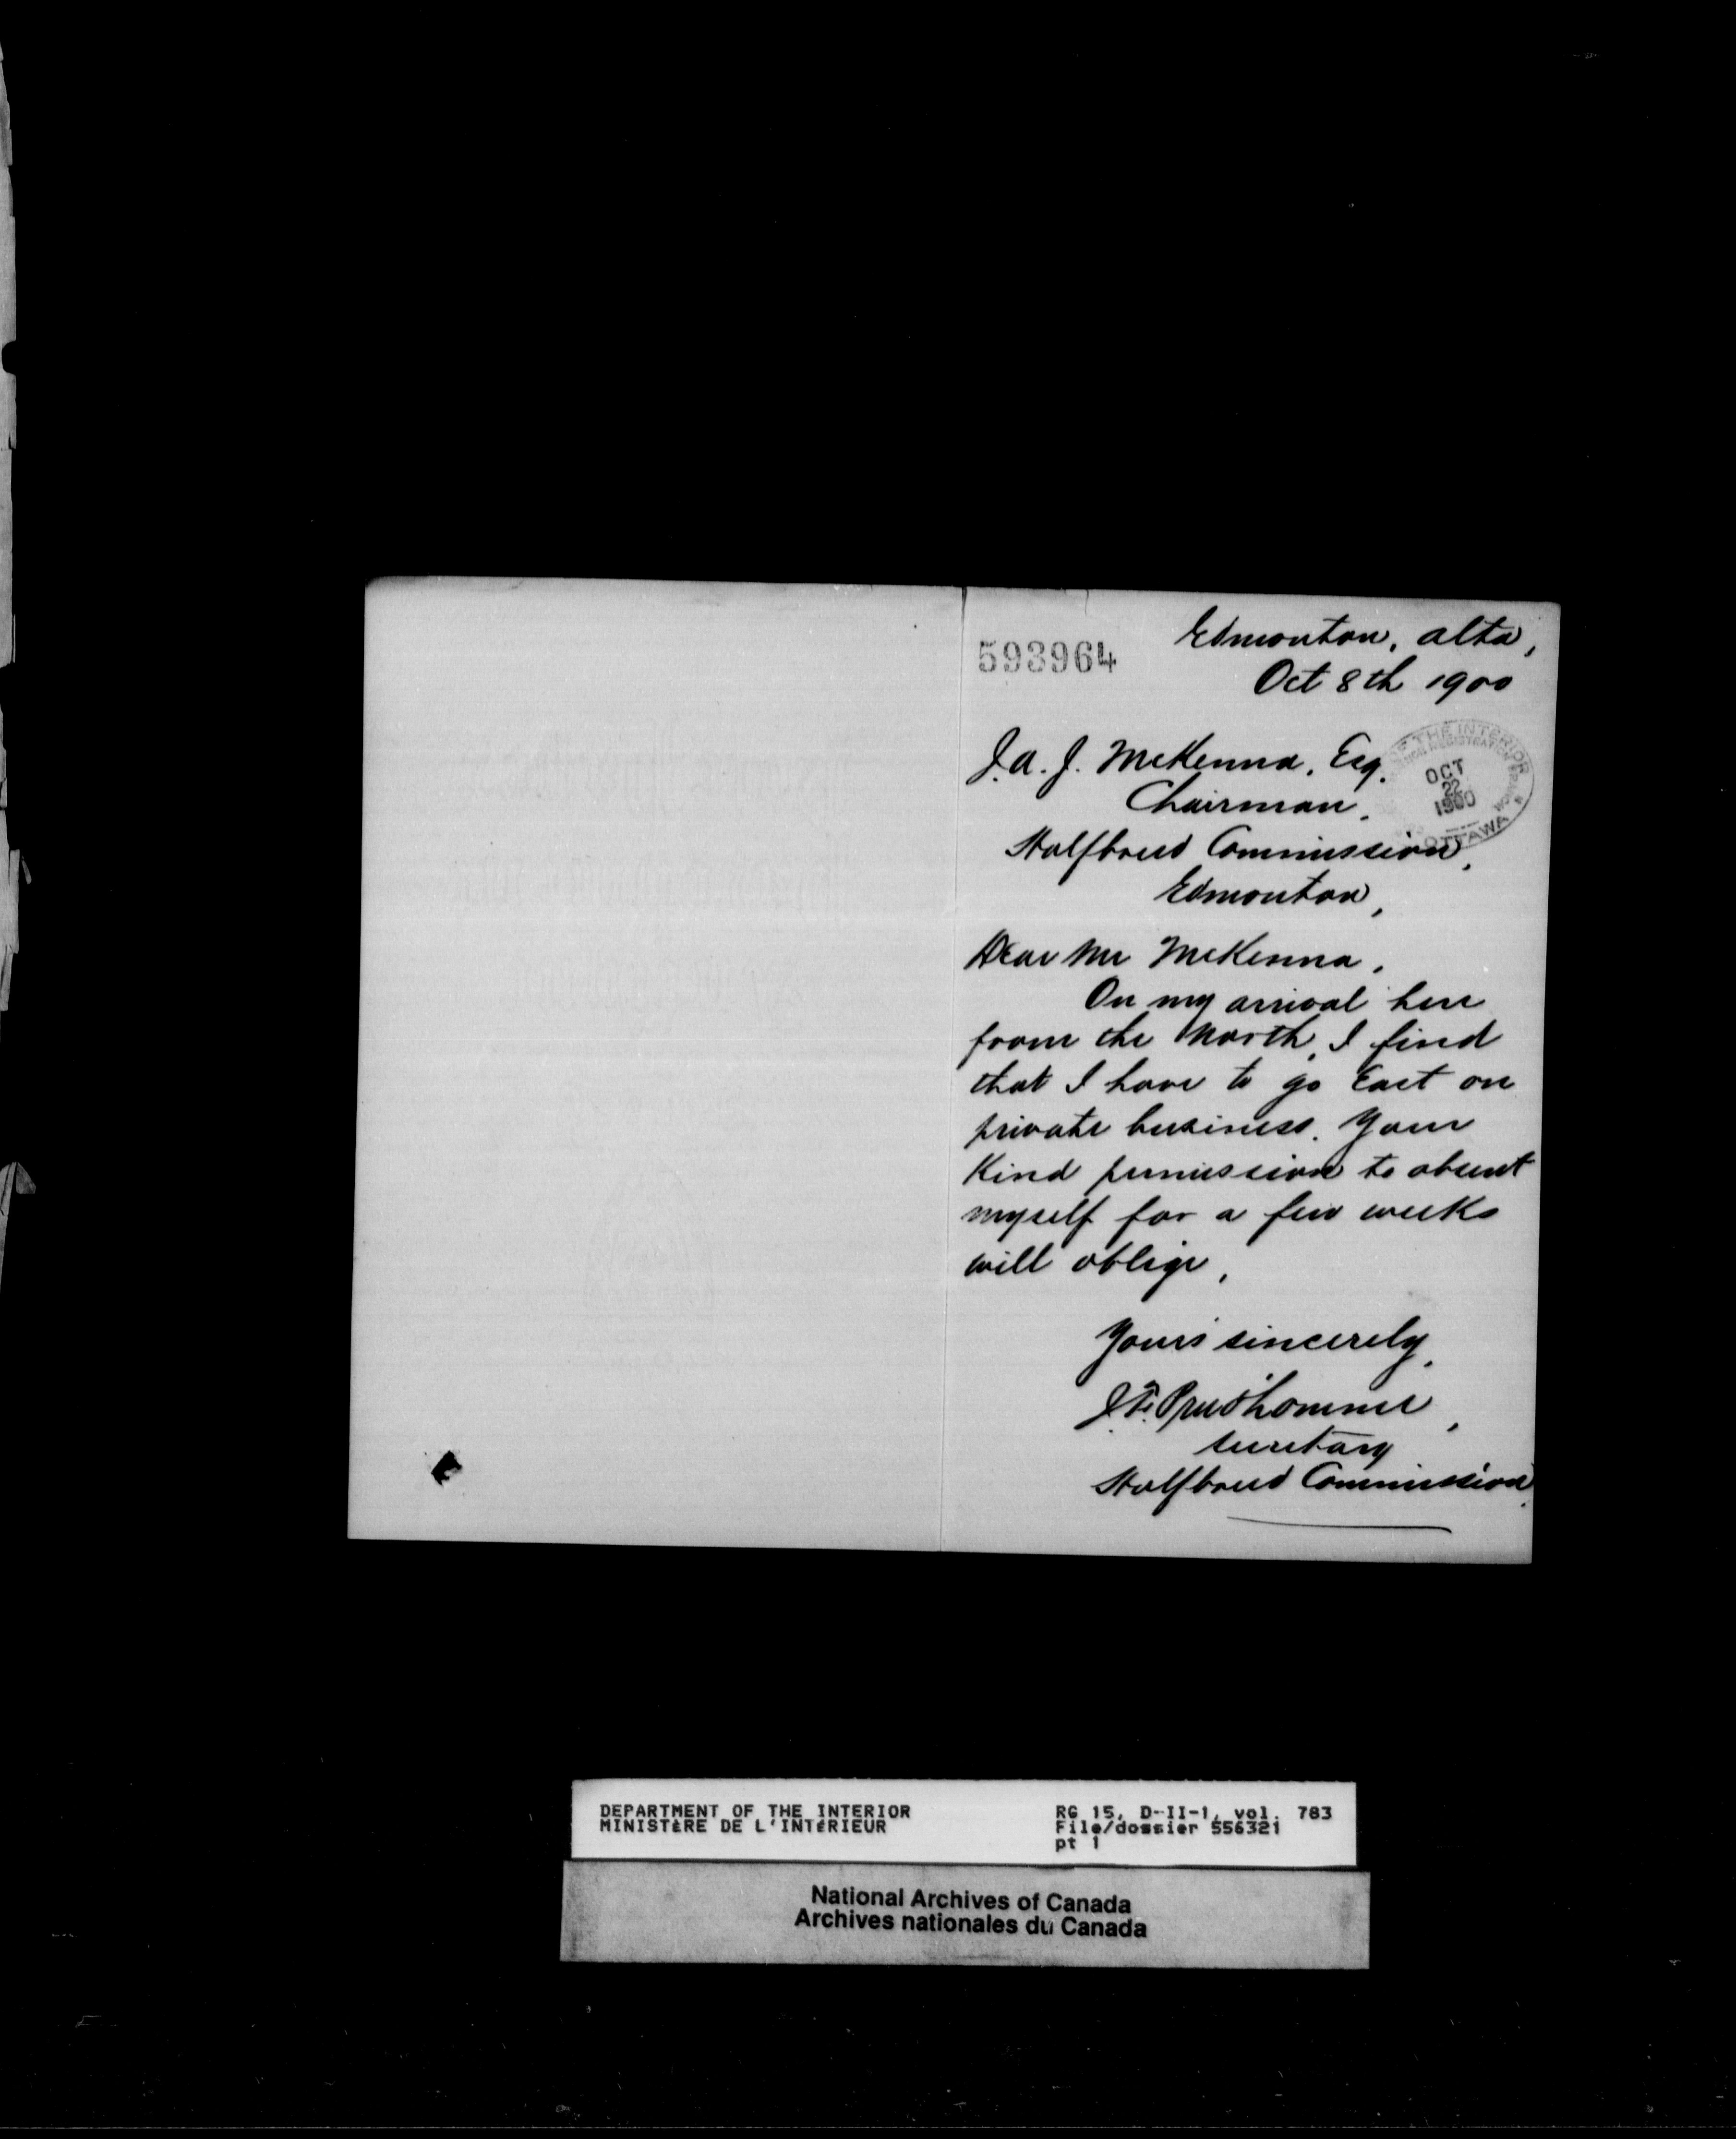 593964
Edmonton, Alta,
Oct 8th 1900
J. A. J. McKenna, Esq.
Chairman,
Halfbreed Commission,
Edmonton,
OF THE INTERIOR
OCT
22
1900
OTTAWA
Dear Mr McKenna,
On my arrival here
from the North, I find
that I have to go East on
private business. Your
Kind permission to absent
myself for a few weeks
will oblige,
Yours sincerely,
J. F. Prud'homme,
Secretary
Halfbreed Commission.
DEPARTMENT OF THE INTERIOR
MINISTÈRE DE L'INTÉRIEUR
RG 15, D-II-1, vol. 783
File/dossier 556321
pt 1
National Archives of Canada
Archives nationales du Canada